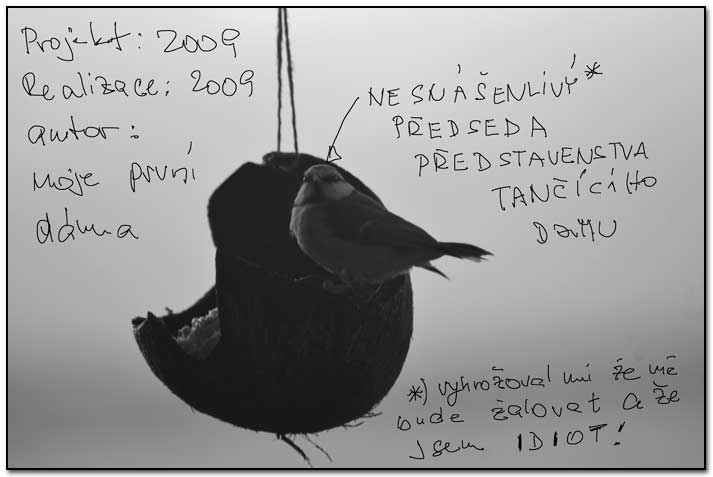 Projekt: 2009
Realizace: 2009
autor:
moje první
dáma
NESNÁŠENLIVÝ*
PŘEDSEDA
PŘEDSTAVENSTVA
TANČÍCÍHO
DOMU
*) vyhrožoval mi že mě
bude žalovat a že
jsem IDIOT!